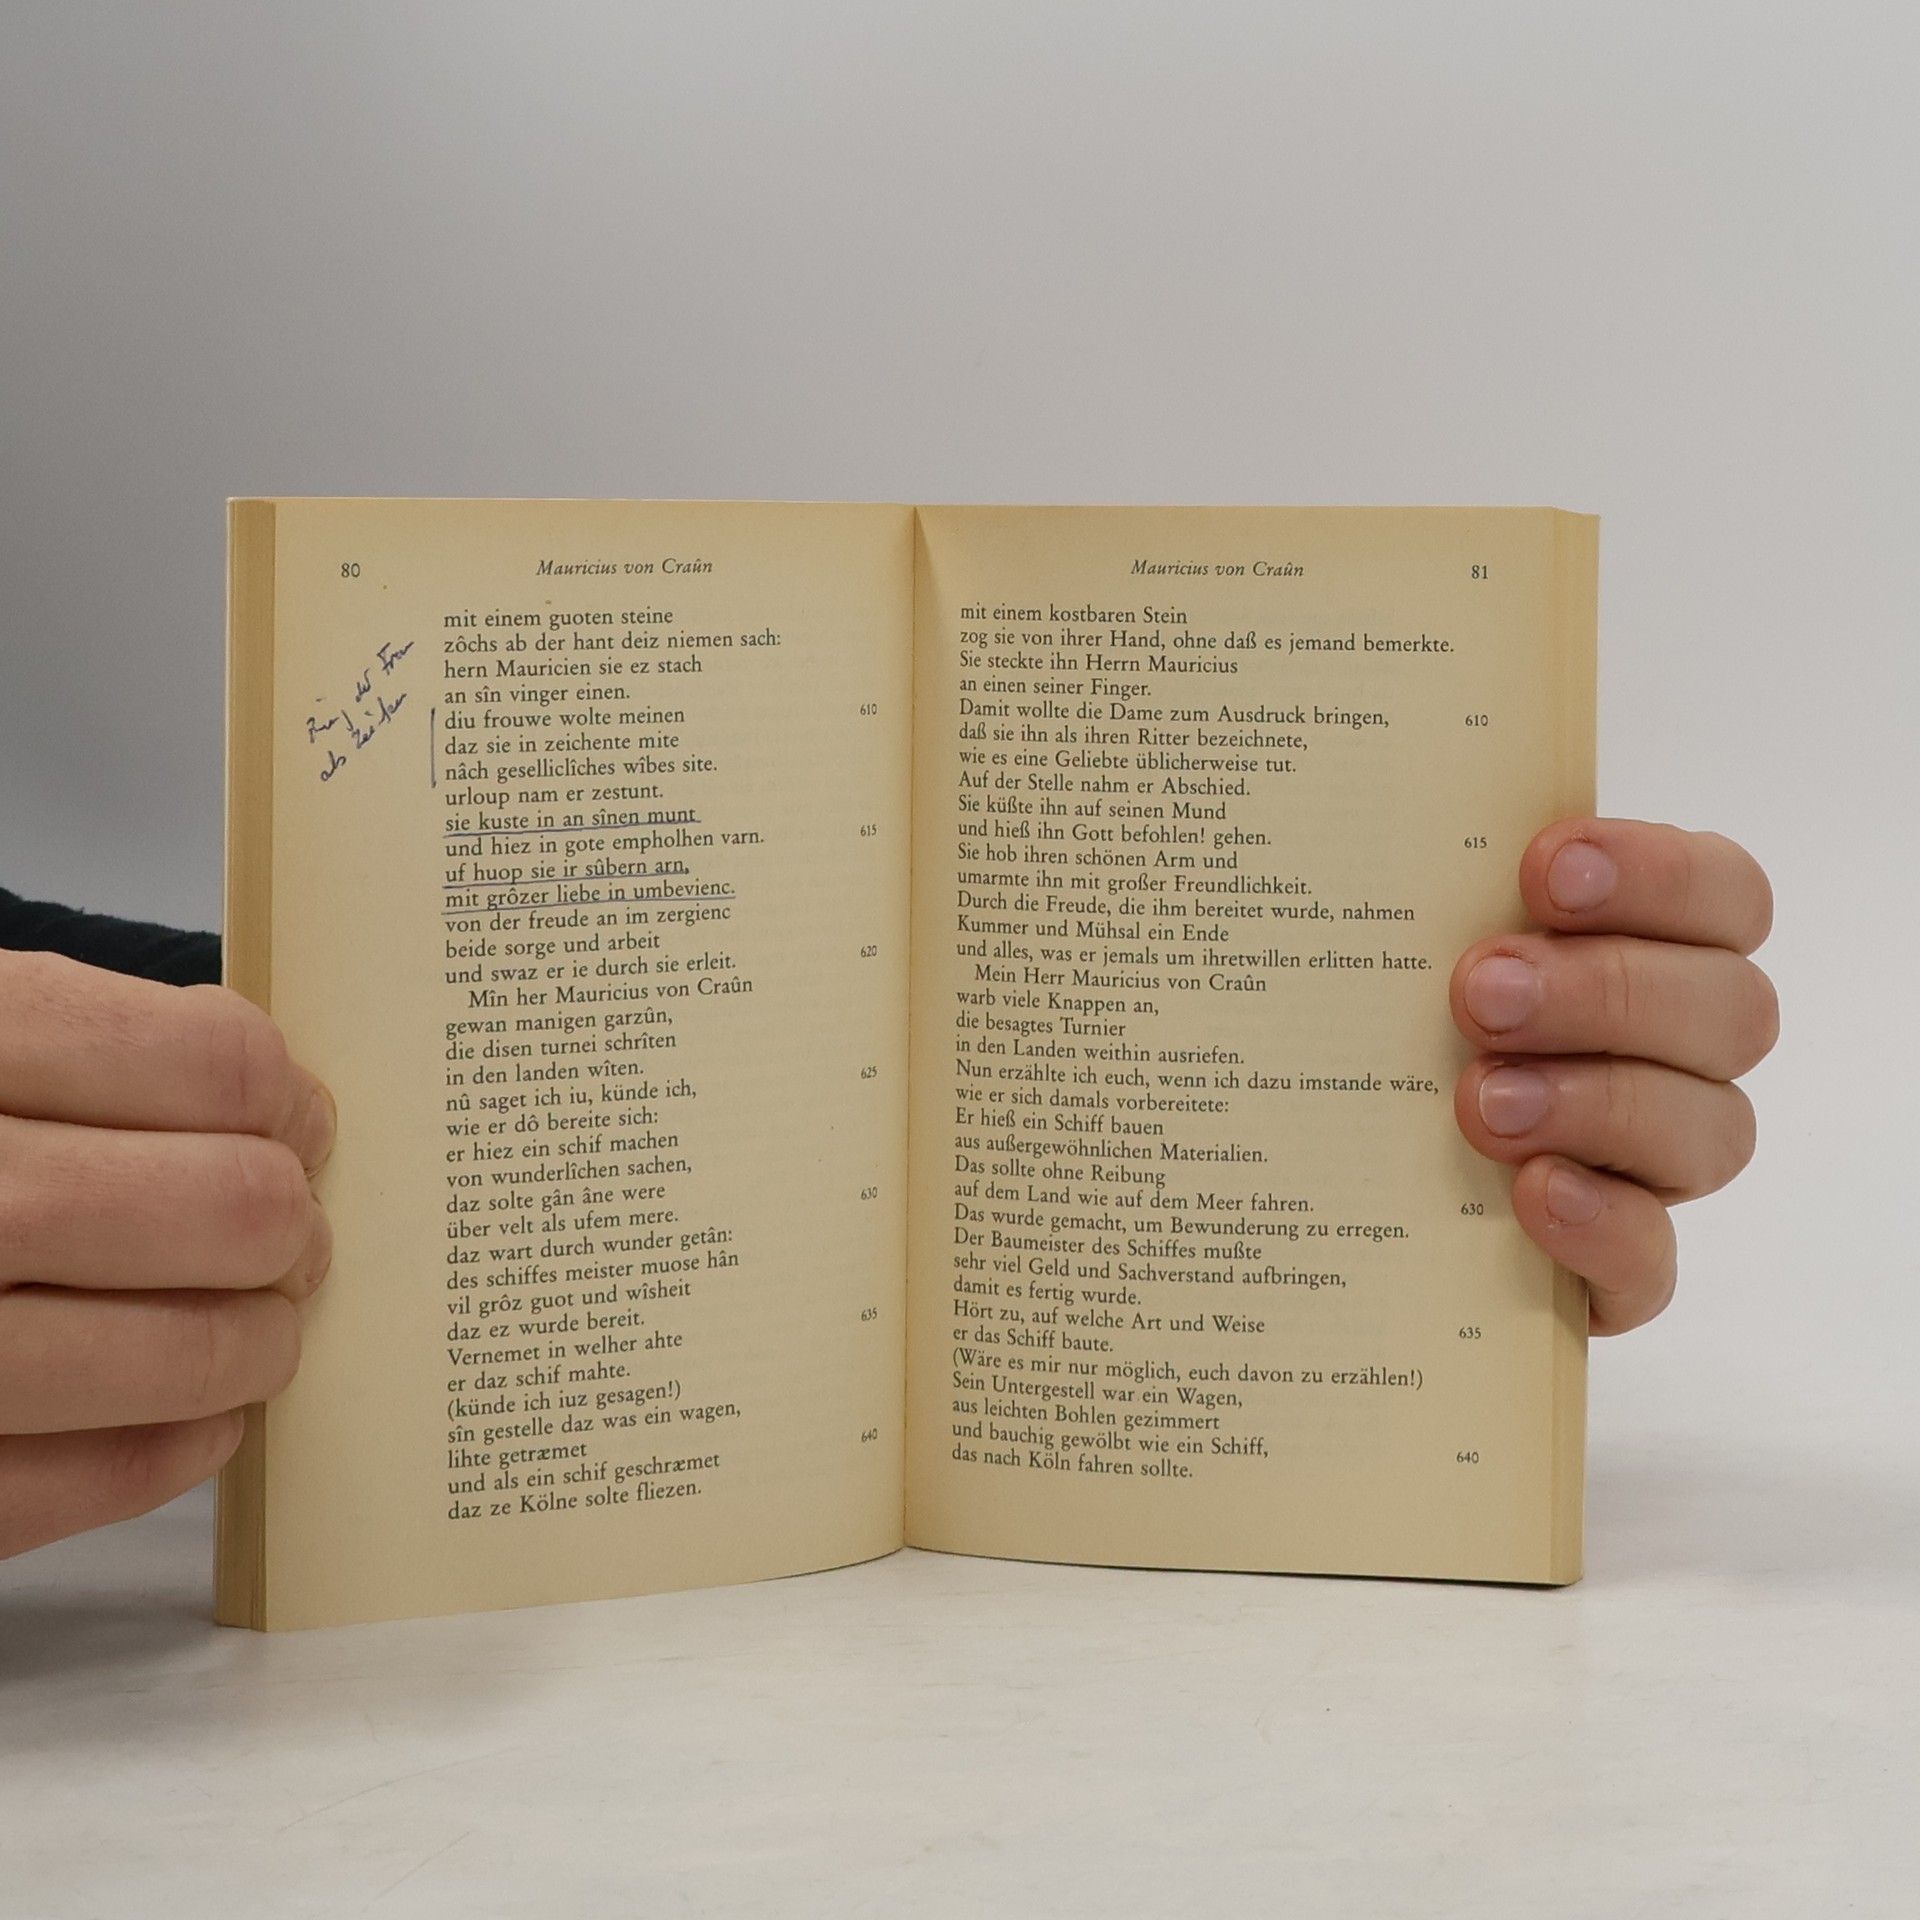 80
Mauricius von Craûn
mit einem guoten steine
zôchs ab der hant deiz niemen sach:
hern Mauricien sie ez stach
an sîn vinger einen.
diu frouwe wolte meinen 610
daz sie in zeichente mite
nâch gesellіclîches wîbes site.
urloup nam er zestunt.
sie kuste in an sînen munt
und hiez in gote empholhen varn. 615
uf huop sie ir sûbern arn,
mit grôzer liebe in umbevienc.
von der freude an im zergienc
beide sorge und arbeit
und swaz er ie durch sie erleit. 620
Mîn her Mauricius von Craûn
gewan manigen garzûn,
die disen turnei schrîten
in den landen wîten.
nû saget ich iu, künde ich, 625
wie er dô bereite sich:
er hiez ein schif machen
von wunderlîchen sachen,
daz solte gân âne were
über velt als ufem mere. 630
daz wart durch wunder getân:
des schiffes meister muose hân
vil grôz guot und wîsheit
daz ez wurde bereit.
Vernemet in welher ahte 635
er daz schif mahte.
(künde ich iuz gesagen!)
sîn gestelle daz was ein wagen,
lihte getræmet
und als ein schif geschræmet 640
daz ze Kölne solte fliezen.
Ring der Frau
als Zeichen
Mauricius von Craûn
81
mit einem kostbaren Stein
zog sie von ihrer Hand, ohne daß es jemand bemerkte.
Sie steckte ihn Herrn Mauricius
an einen seiner Finger.
Damit wollte die Dame zum Ausdruck bringen, 610
daß sie ihn als ihren Ritter bezeichnete,
wie es eine Geliebte üblicherweise tut.
Auf der Stelle nahm er Abschied.
Sie küßte ihn auf seinen Mund
und hieß ihn Gott befohlen! gehen. 615
Sie hob ihren schönen Arm und
umarmte ihn mit großer Freundlichkeit.
Durch die Freude, die ihm bereitet wurde, nahmen
Kummer und Mühsal ein Ende
und alles, was er jemals um ihretwillen erlitten hatte.
Mein Herr Mauricius von Craûn
warb viele Knappen an,
die besagtes Turnier
in den Landen weithin ausriefen.
Nun erzählte ich euch, wenn ich dazu imstande wäre,
wie er sich damals vorbereitete:
Er hieß ein Schiff bauen
aus außergewöhnlichen Materialien.
Das sollte ohne Reibung
auf dem Land wie auf dem Meer fahren. 630
Das wurde gemacht, um Bewunderung zu erregen.
Der Baumeister des Schiffes mußte
sehr viel Geld und Sachverstand aufbringen,
damit es fertig wurde.
Hört zu, auf welche Art und Weise 635
er das Schiff baute.
(Wäre es mir nur möglich, euch davon zu erzählen!)
Sein Untergestell war ein Wagen,
aus leichten Bohlen gezimmert
und bauchig gewölbt wie ein Schiff, 640
das nach Köln fahren sollte.